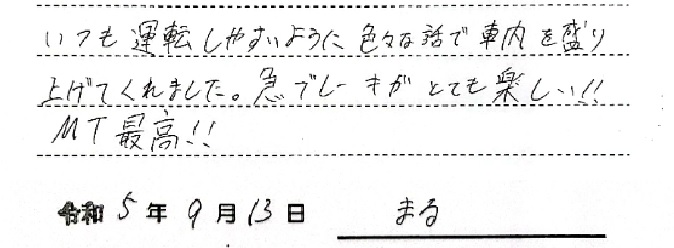 いつも運転しやすいように色々な話で車内を盛り
上げてくれました。急ブレーキがとても楽しい!!
MT最高!!
令和5年9月13日 まる